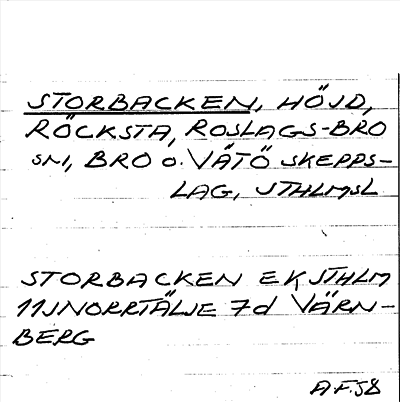 STORBACKEN, HÖJD,
RÖCKSTA, ROSLAGS-BRO
SN, BRO o. VÄTÖ SKEPPS-
LAG, STHLMSL
STORBACKEN EK, STHLM
11J NORRTÄLJE 7d VÄRN-
BERG
A.F.58